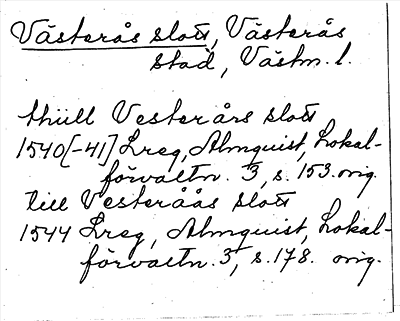 Västerås slott, Västerås
stad, Västm. l.
thiill Vesterårs slott
1540[-41] Lreg, Almquist, Lokal-
förvaltn. 3, s. 153. orig.
till Vesteråås slott
1544 Lreg, Almquist, Lokal-
förvaltn. 3, s. 178. orig.